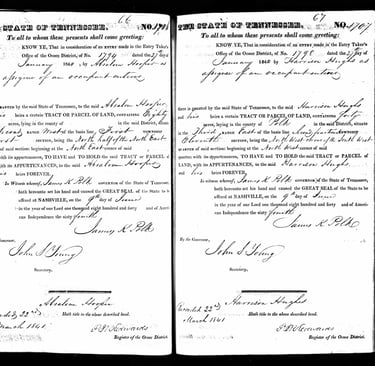 66
STATE OF TENNESSEE. NO. 1706
To all to whom these presents shall come greeting:
KNOW YE, That in consideration of an entry made in the Entry Taker's
Office of the Ocoee District, of No. 1794 dated the 27 day of
January 1840 by Absalom Hooper
assignee of an occupant enterer
by the said State of Tennessee, to the said Absalom Hooper
being a certain TRACT OR PARCEL OF LAND, containing Eighty
acres, lying in the county of Polk in the said District,
Range West of the basis line, First
North half of the North East
North East corner of said
of said section beginning at the
with its appurtenances, TO HAVE and TO HOLD the said TRACT or PARCEL of
LAND, with its APPURTENANCES, to the said Absalom Hooper
heirs FOREVER.
In Witness whereof, James K. Polk GOVERNOR of the State of Tennessee,
hath hereunto set his hand and caused the GREAT SEAL of the State to be
affixed at NASHVILLE, on the 9th day of June
in the year of our Lord one thousand eight hundred and forty and of American
Independence the sixty fourth
James K. Polk
By the Governor,
John S. Young
Secretary.
Absalom Hooper
Hath title to the above described land.
22nd
March 1841.
Register of the Ocoee District.
67
THE STATE OF TENNESSEE. NO. 1707
To all to whom these presents shall come greeting:
KNOW YE, That in consideration of an entry made in the Entry Taker's
Office of the Ocoee District, of No. 1798 dated the 27 day of
January 1840 by Harrison Hughs
assignee of an occupant enterer
there is granted by the said State of Tennessee, to the said Harrison Hughs
and his heirs being a certain TRACT OR PARCEL OF LAND, containing forty
acres, lying in the county of Polk in the said District,
in the Third Range East of the basis line,
Eleventh Section, being the North West of the South West
of said section beginning at the North West corner of said
quarter; with its appurtenances, TO HAVE and TO HOLD the said TRACT or PARCEL of
LAND, with its APPURTENANCES, to the said Harrison Hughs
and his heirs FOREVER.
In witness whereof, James K. Polk GOVERNOR of the State of Tennessee,
hath hereunto set his hand and caused the GREAT SEAL of the State to be
affixed at NASHVILLE, on the 9th day of June
in the year of our Lord one thousand eight hundred and forty and of American
Independence the sixty fourth
James K. Polk
By the Governor,
John S. Young
Secretary.
Harrison Hughs
Recorded 22nd
Hath title to the above described land.
March 1841
Register of the Ocoee District.